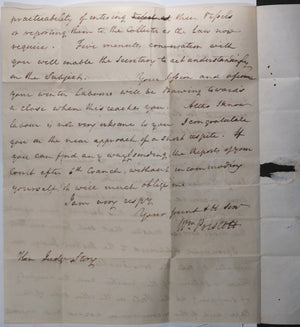 practicability of entering their Vessels
or reporting them to the Collector as the Law now
requires. Five minutes conversation with
you will enable the Secretary to act understandingly
on the Subject. Your Session and of course
your winter Labours will be drawing towards
a close when this reaches you.
labour is not very irksome to you I congratulate
you on the near approach of a short respite. If
you can find any way sending the Reports of your
Court after 6th Cranch, without incommoding
yourself, it will much oblige me
I am very respy.
Your friend & Ser
Wm Prescott
Hon Judge Story.